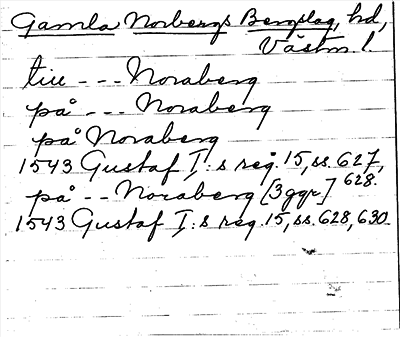 Gamla Norbergs Bergslag, hd,
Västm. l.
till --- Noraberg
på --- Noraberg
på Noraberg
1543 Gustaf I:s reg. 15, ss. 627,
628.
på -- Noraberg [3 ggr]
1543 Gustaf I:s reg. 15, ss. 628, 630.